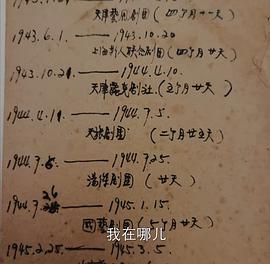 天津艺風剧团 (四个月十一天)
1943.6.1. —— 1943.10.20
上海影人联合剧团 (四个月廿天)
1943.10.21 —— 1944.4.10.
天津 剧社. (五个月廿天)
1944.4.11 —— 1944.7.5.
天旅剧团 (二个月廿五天)
1944.7.5. —— 1944.7.25.
剧团 (廿天)
1944.7.26 —— 1945.1.15.
国艺剧团 (五个月廿天)
我在哪儿
1945.2.25. —— 1945.3.5.